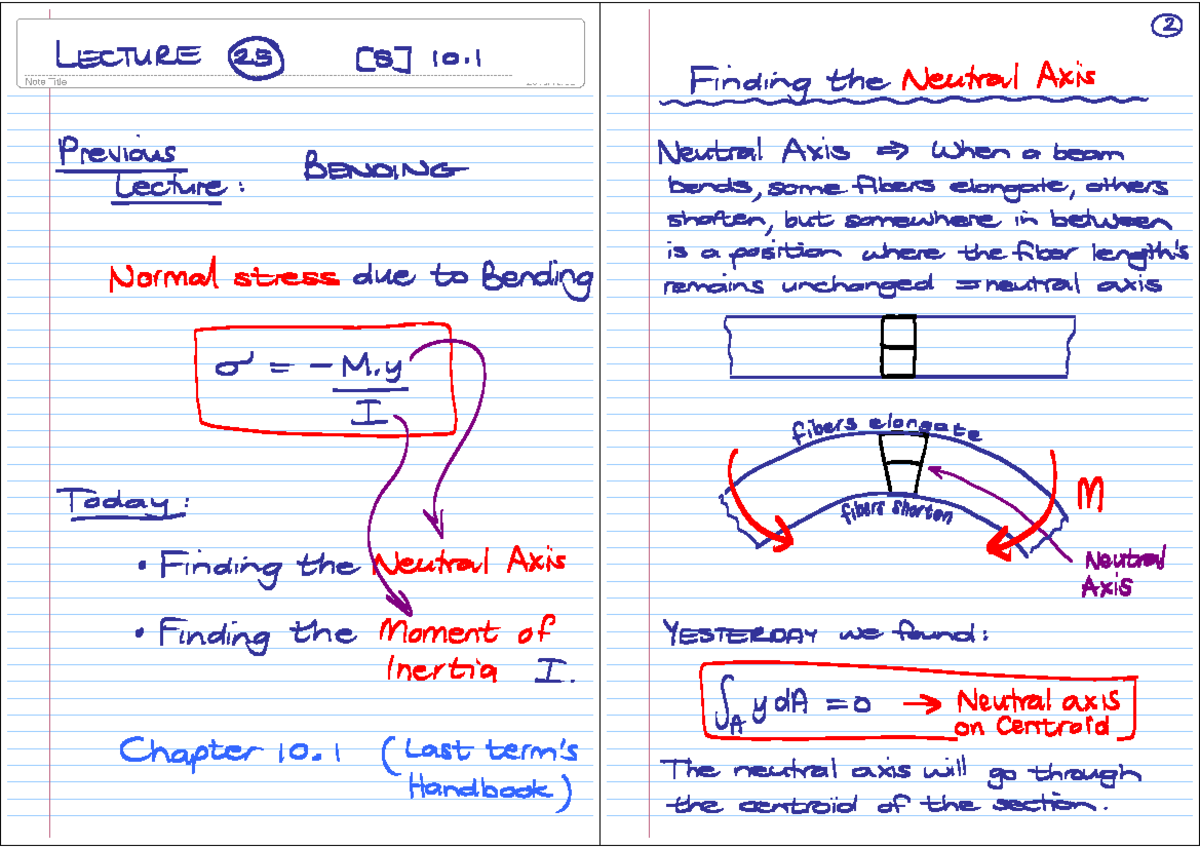 LECTURE 23 [S] 10.1
Note Title
Previous
Lecture: BENDING
Normal stress due to Bending
σ = - M.y
I
Today:
• Finding the Neutral Axis
• Finding the Moment of
Inertia I.
Chapter 10.1 (Last term's
Handbook)
2
Finding the Neutral Axis
Neutral Axis ⇒ When a beam
bends, some fibers elongate, others
shorten, but somewhere in between
is a position where the fiber length's
remains unchanged = neutral axis
fibers elongate
M
fibers shorten
Neutral
Axis
YESTERDAY we found:
∫A y dA = 0 → Neutral axis
on Centroid
The neutral axis will go through
the centroid of the section.